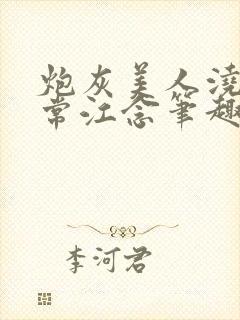 炮灰美人浇
常江念笔趣
李河君